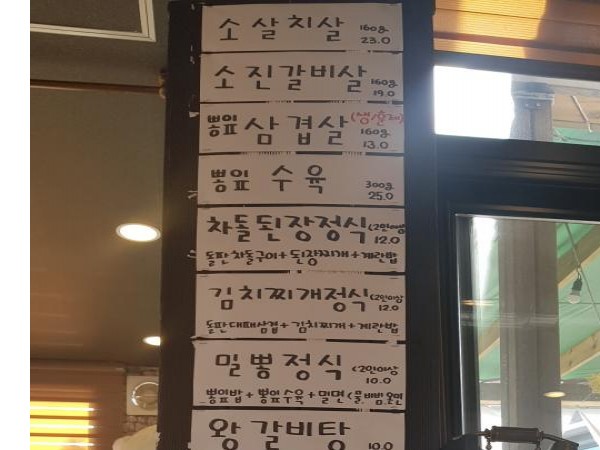 소 살치살 160g 23.0
소진갈비살 160g 19.0
뽕잎 삼겹살 (생,훈제) 160g 13.0
뽕잎 수육 300g 25.0
차돌된장정식 (2인이상) 12.0
돌판차돌구이+된장찌개+계란밥
김치찌개정식 (2인이상) 12.0
돌판대패삼겹+김치찌개+계란밥
밀뽕정식 (2인이상) 10.0
뽕잎밥+뽕잎수육+밀면(물,비빔,온면
왕갈비탕 10.0